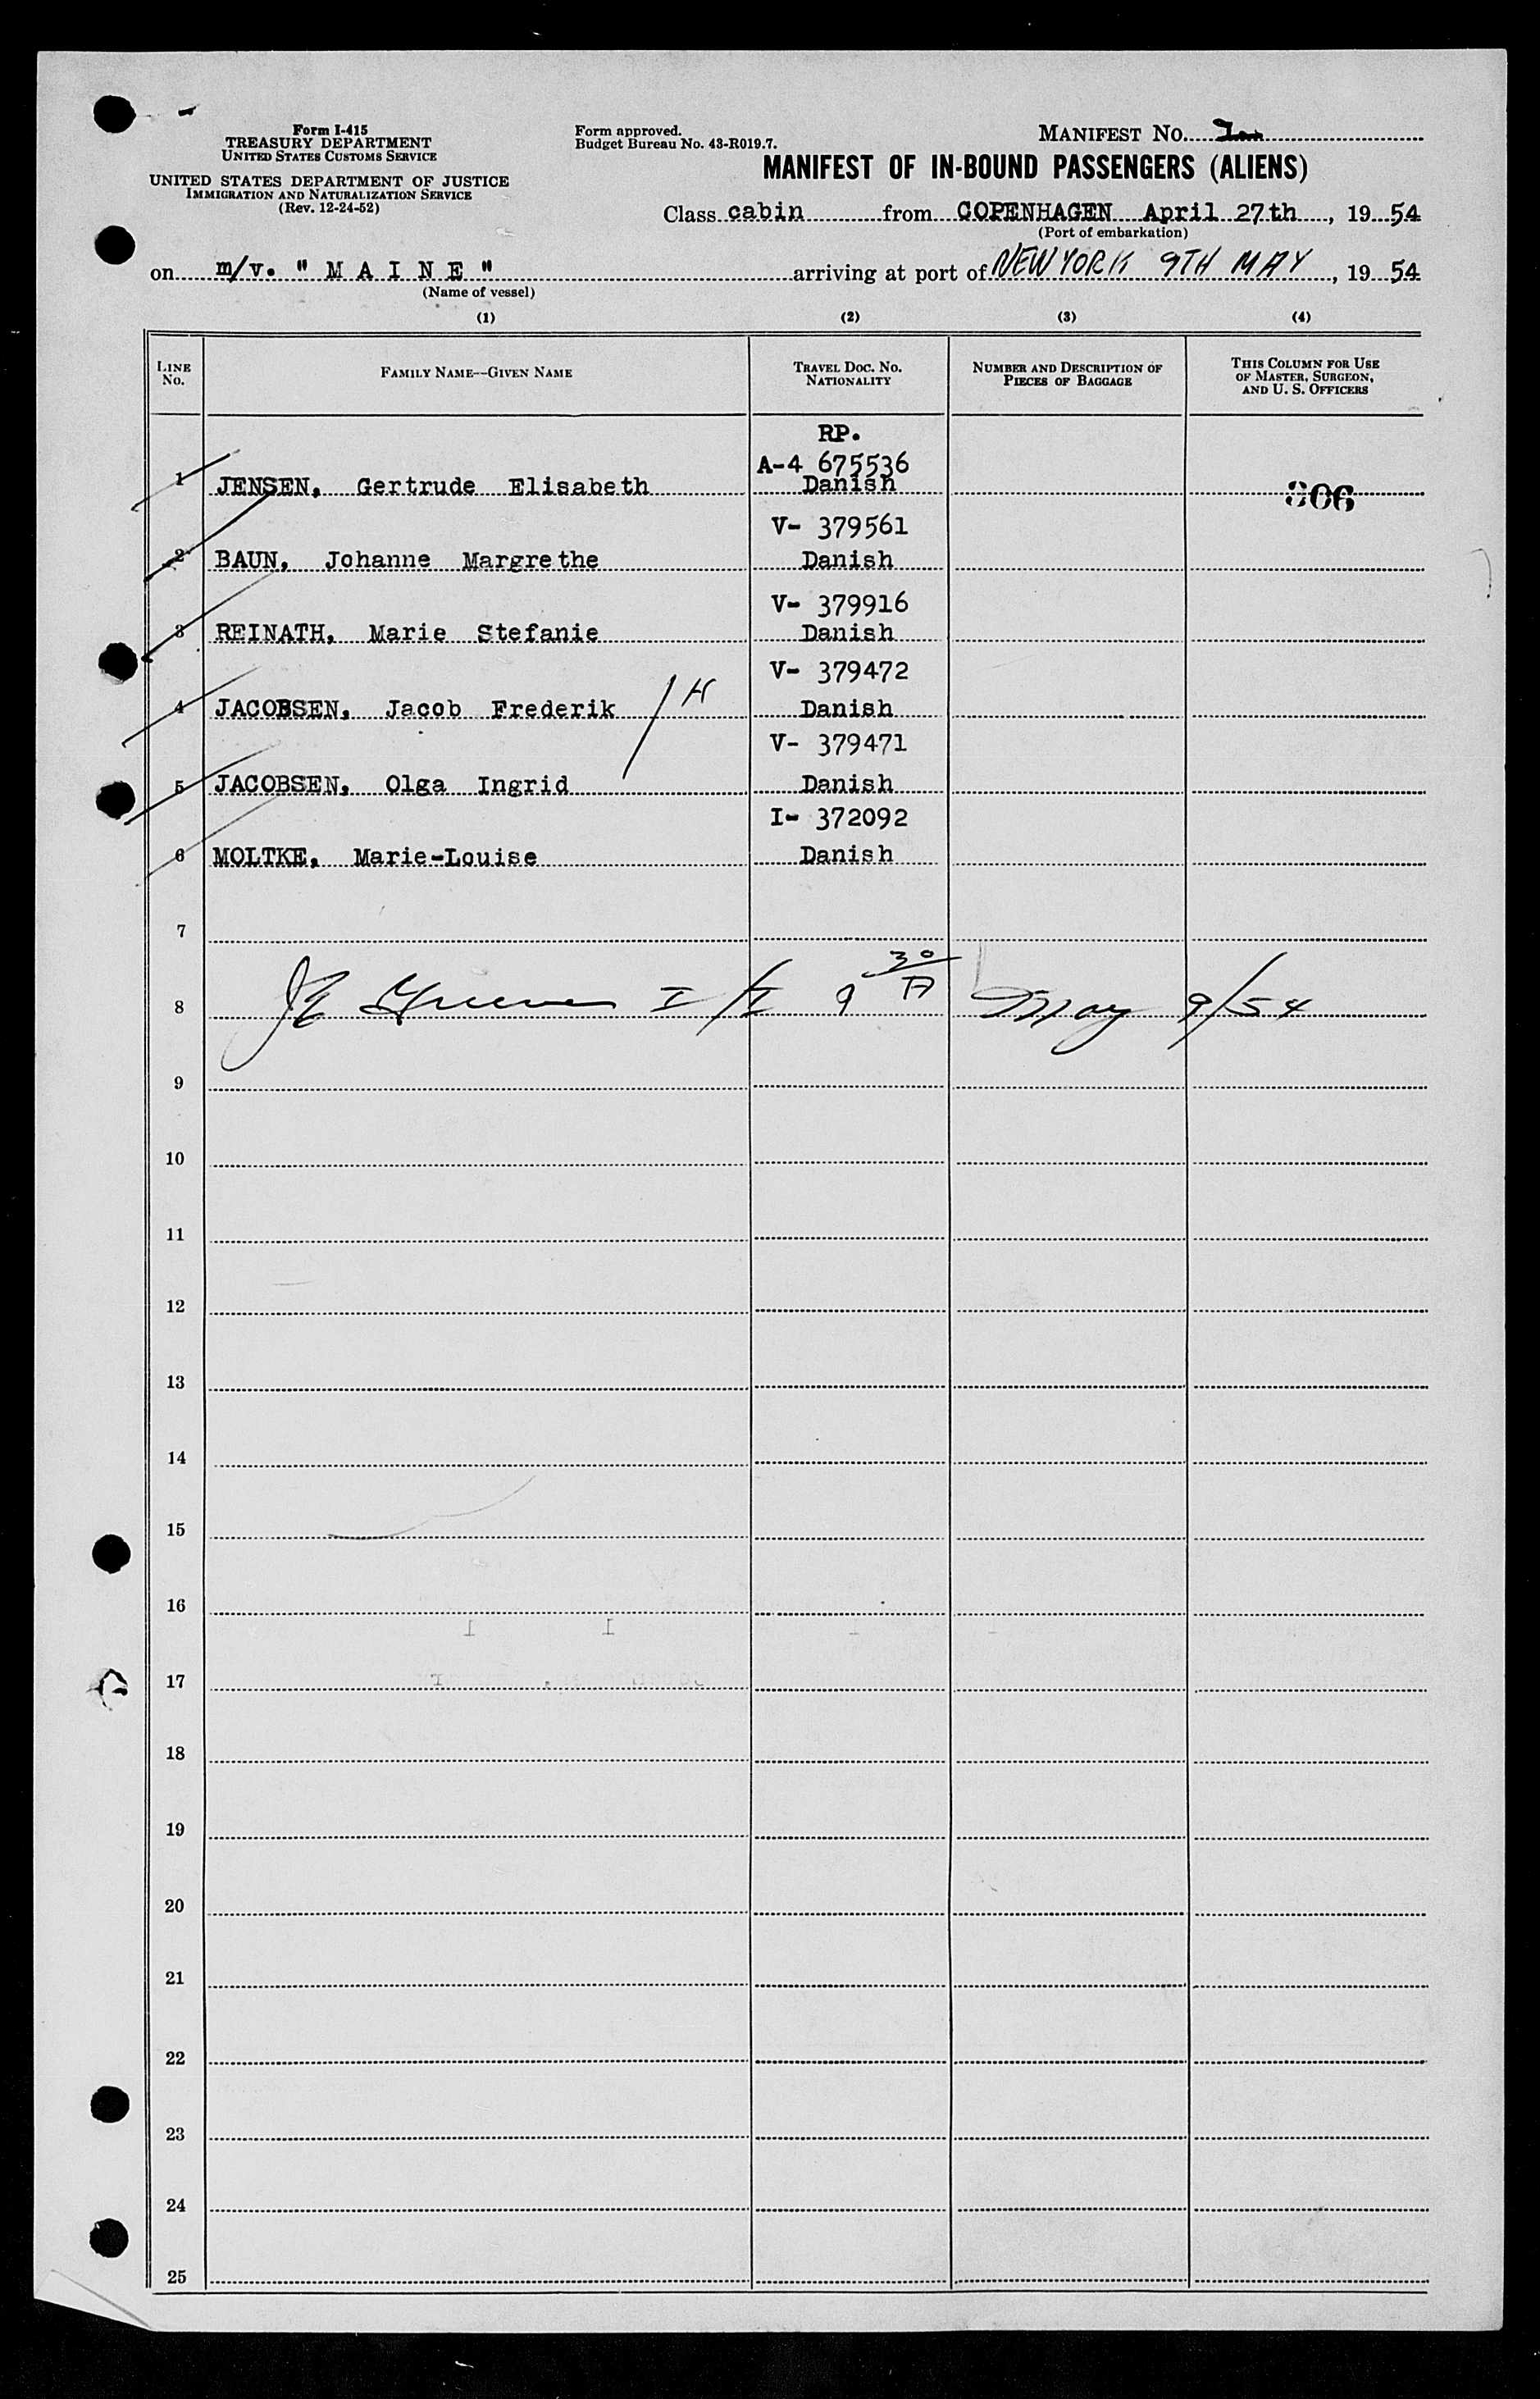 Form I-415
TREASURY DEPARTMENT
UNITED STATES CUSTOMS SERVICE
UNITED STATES DEPARTMENT OF JUSTICE
IMMIGRATION AND NATURALIZATION SERVICE
(Rev. 12-24-52)
Form approved.
Budget Bureau No. 43-R019.7.
MANIFEST NO.
MANIFEST OF IN-BOUND PASSENGERS (ALIENS)
Class cabin from COPENHAGEN April 27th, 19 54
(Port of embarkation)
on m/v. " M A I N E " arriving at port of NEW YORK 9TH MAY, 19 54
(Name of vessel)
(1) (2) (3) (4)
LINE NO. FAMILY NAME--GIVEN NAME TRAVEL DOC. NO. NATIONALITY NUMBER AND DESCRIPTION OF PIECES OF BAGGAGE THIS COLUMN FOR USE OF MASTER, SURGEON, AND U. S. OFFICERS
RP.
A-4 675536
1 JENSEN, Gertrude Elisabeth Danish 306
V- 379561
2 BAUN, Johanne Margrethe Danish
V- 379916
3 REINATH, Marie Stefanie Danish
V- 379472
4 JACOBSEN, Jacob Frederik H Danish
V- 379471
5 JACOBSEN, Olga Ingrid Danish
I- 372092
6 MOLTKE, Marie-Louise Danish
7
8 I/I 9 30/A May 9/54
9
10
11
12
13
14
15
16
17
18
19
20
21
22
23
24
25